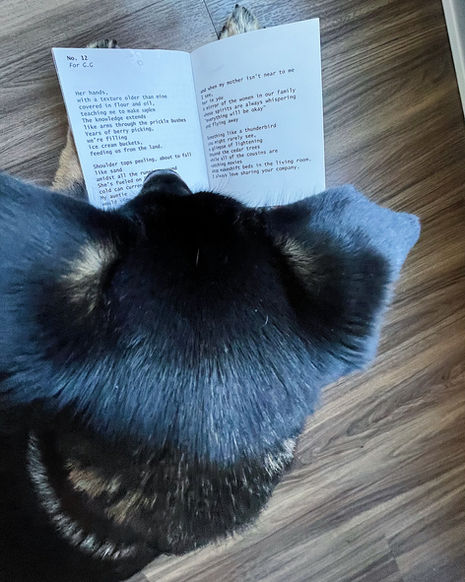 No. 12
For G.G
Her hands,
with a texture older than mine
covered in flour and oil,
teaching me to make sapks
The knowledge extends
like arms through the prickle bushes
Years of berry picking,
we're filling
ice cream buckets,
feeding us from the land.
Shoulder tops peeling, about to fall
like sand
amidst all the
She's fueled on
cold can
My auntie
and when my mother isn't near to me
I see,
her in you
a mirror of the women in our family
whose spirits are always whispering
"everything will be okay"
and flying away
Something like a thunderbird
you might rarely see,
a glimpse of lightening
around the cedar trees
while all of the cousins are
watching movies
on makeshift beds in the living room.
I always love sharing your company.